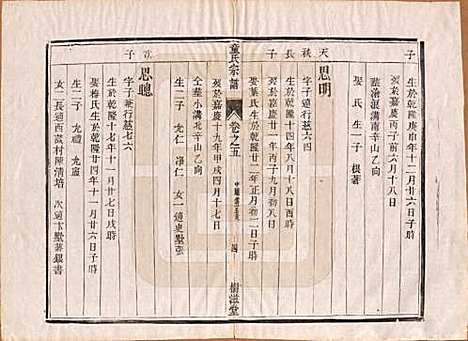 子
生於乾隆庚申年十二月廿六日子時
歿嘉慶丙子年六月十八日
葬滄浪溝南辛山乙向
娶 氏 生一子 根著
天秩長子
思明
字子 遠行慈六四
生於乾隆十四年八月十八日酉時
歿於嘉慶一年丙子九月初八日
娶葉氏生於乾隆廿二年正月初二日子時
童氏宗譜
卷之五
四
樹滋堂
歿於嘉慶十九年甲戌四月十七日
仝葬小溝北辛山乙向
生二子 允仁 洛仁 女一適史墅張
次子
思聰
字子 行慈七六
生於乾隆十七年十一月廿七日戌時
娶梅氏生於乾隆廿四年十一月廿六日子時
生二子 允禮 允憲
女二長適西 村陳清培 次適卞墅蔣銀書